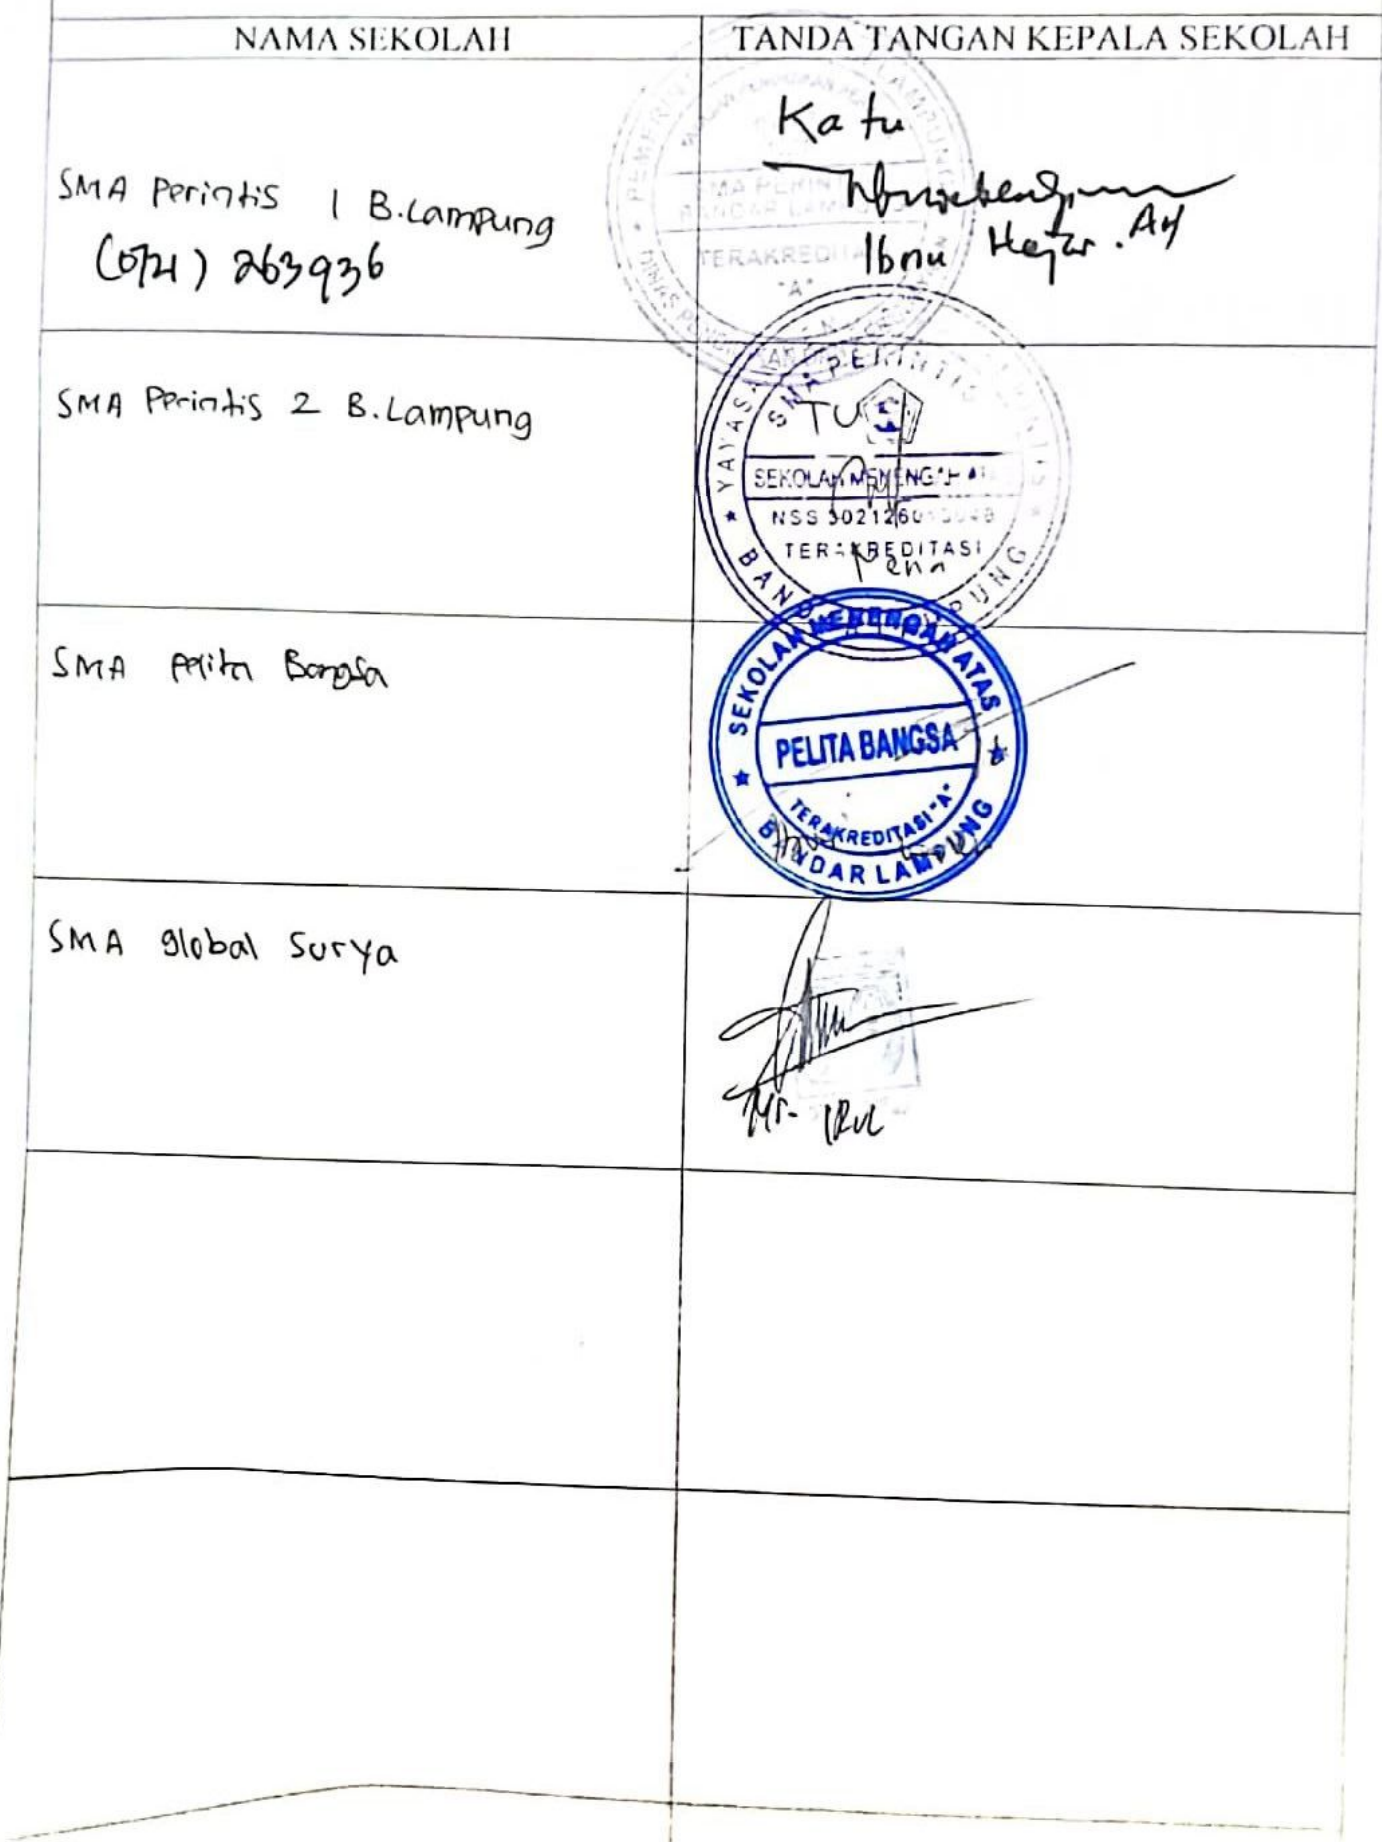 NAMA SEKOLAH
TANDA TANGAN KEPALA SEKOLAH
SMA Perintis 1 B.Lampung
(0721) 263936
Ka tu
Ibnu Hajar. AH
SMA PERIN
BANDAR LAMPUNG
TERAKREDITA
"A"
SMA Perintis 2 B.Lampung
YAYASAN
SMA PERINTIS
TU
SEKOLAH MENENGAH
NSS 302126
TERAKREDITASI
BAND PUNG
SMA Pelita Bangsa
SEKOLAH MENENGAH ATAS
PELITA BANGSA
TERAKREDITASI "A"
BANDAR LAMPUNG
SMA global Surya
Mr.